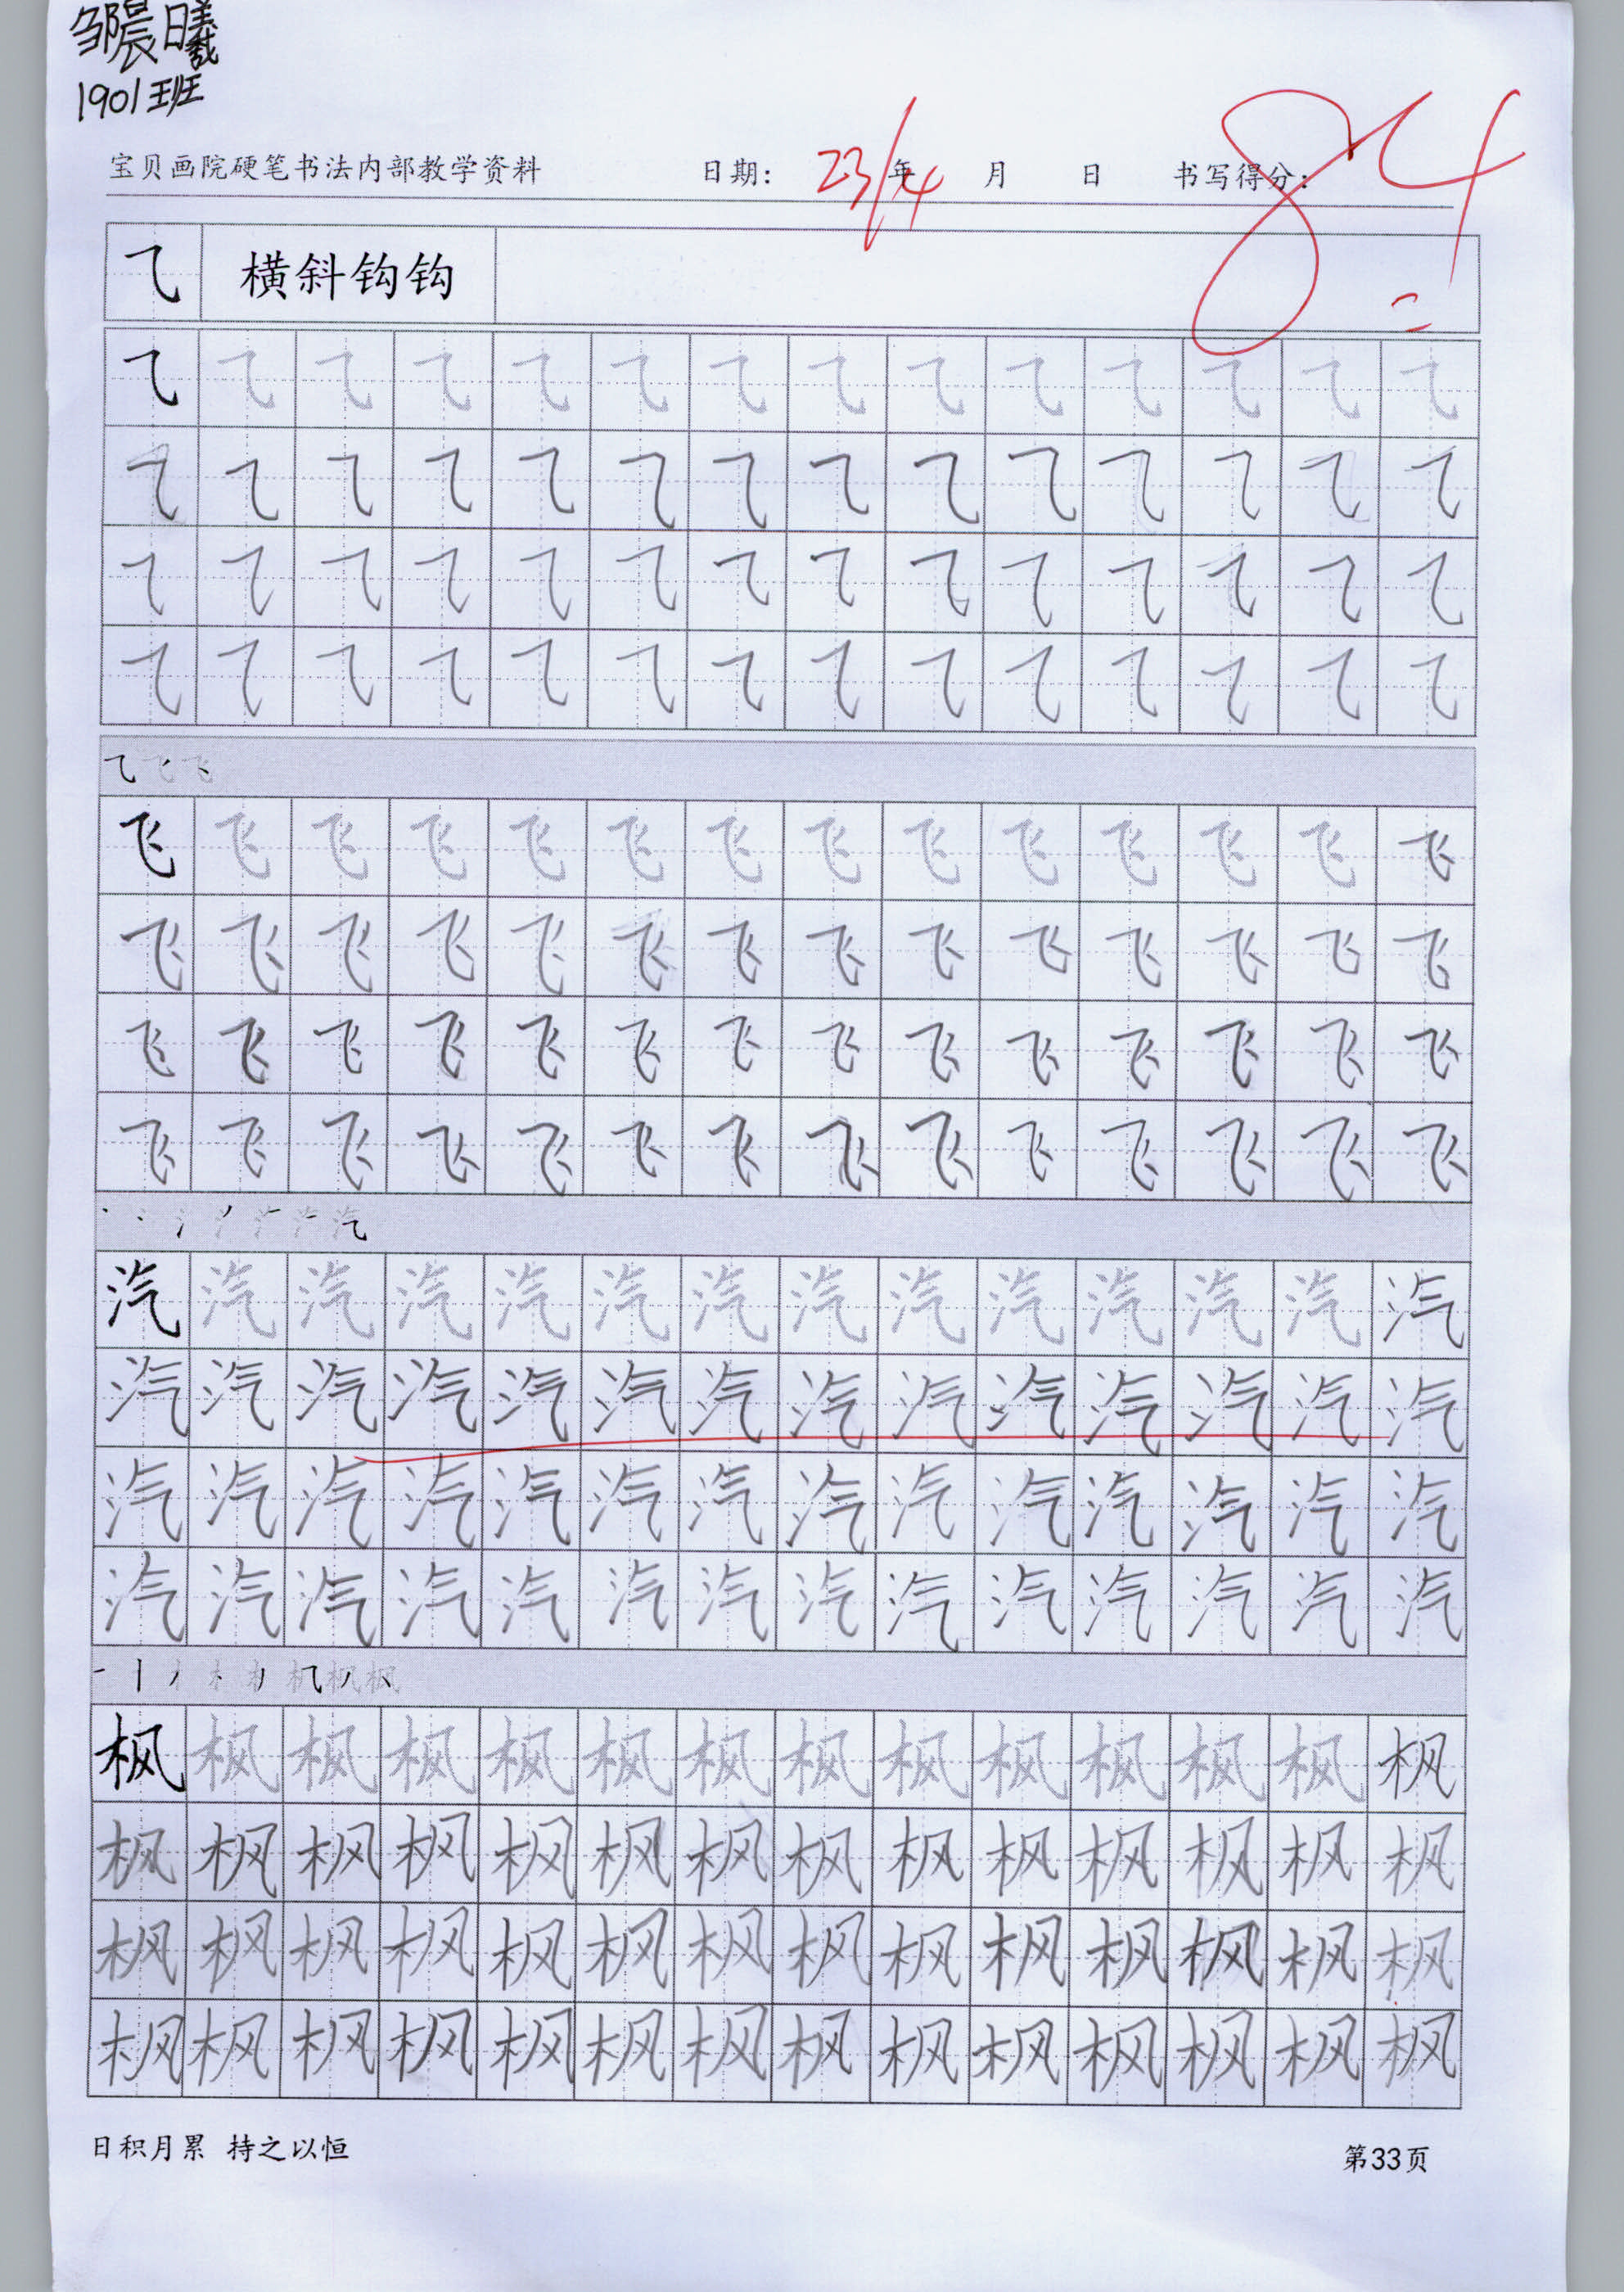 邹晨曦
1901班
宝贝画院硬笔书法内部教学资料 日期: 23/4 年 月 日 书写得分: 84
⺄ 横斜钩钩
⺄ ⺄ ⺄ ⺄ ⺄ ⺄ ⺄ ⺄ ⺄ ⺄ ⺄ ⺄ ⺄ ⺄
⺄ ⺄ ⺄ ⺄ ⺄ ⺄ ⺄ ⺄ ⺄ ⺄ ⺄ ⺄ ⺄ ⺄
⺄ ⺄ ⺄ ⺄ ⺄ ⺄ ⺄ ⺄ ⺄ ⺄ ⺄ ⺄ ⺄ ⺄
⺄ ⺄ ⺄ ⺄ ⺄ ⺄ ⺄ ⺄ ⺄ ⺄ ⺄ ⺄ ⺄ ⺄
飞 飞 飞 飞 飞 飞 飞 飞 飞 飞 飞 飞 飞 飞
飞 飞 飞 飞 飞 飞 飞 飞 飞 飞 飞 飞 飞 飞
飞 飞 飞 飞 飞 飞 飞 飞 飞 飞 飞 飞 飞 飞
飞 飞 飞 飞 飞 飞 飞 飞 飞 飞 飞 飞 飞 飞
汽 汽 汽 汽 汽 汽 汽 汽 汽 汽 汽 汽 汽 汽
汽 汽 汽 汽 汽 汽 汽 汽 汽 汽 汽 汽 汽 汽
汽 汽 汽 汽 汽 汽 汽 汽 汽 汽 汽 汽 汽 汽
汽 汽 汽 汽 汽 汽 汽 汽 汽 汽 汽 汽 汽 汽
枫 枫 枫 枫 枫 枫 枫 枫 枫 枫 枫 枫 枫 枫
枫 枫 枫 枫 枫 枫 枫 枫 枫 枫 枫 枫 枫 枫
枫 枫 枫 枫 枫 枫 枫 枫 枫 枫 枫 枫 枫 枫
枫 枫 枫 枫 枫 枫 枫 枫 枫 枫 枫 枫 枫 枫
日积月累 持之以恒 第33页